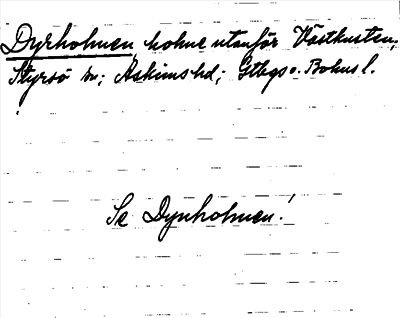 Dyrholmen, holme utanför Västkusten,
Styrsö sn; Askims hd; Gtbgs o. Bohus l.
Se Dynholmen!